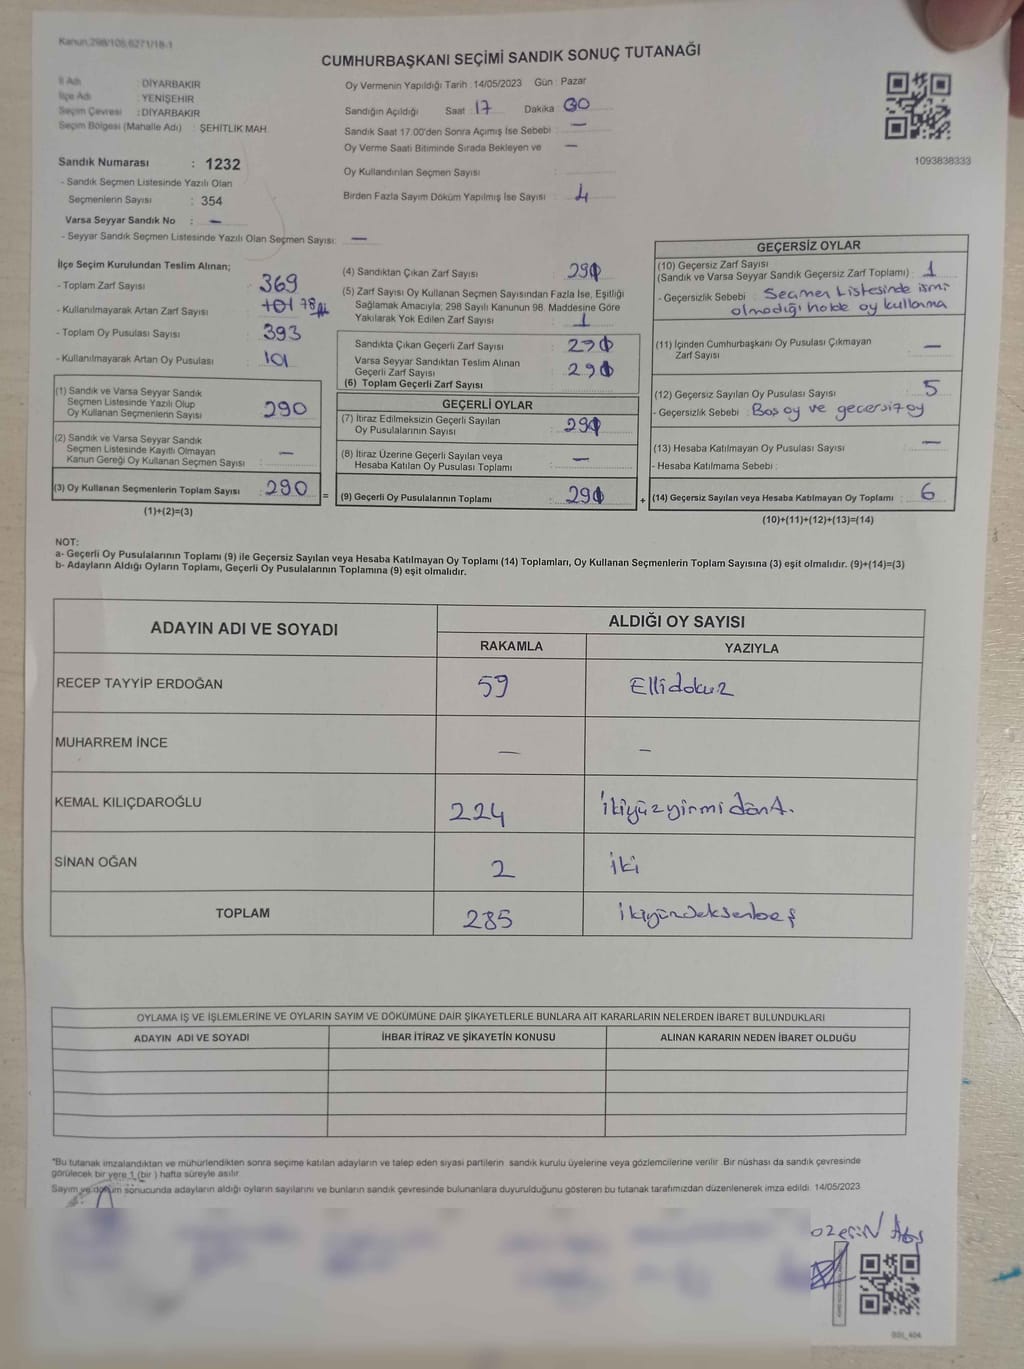 Kanun,298/105,6271/18-1
CUMHURBAŞKANI SEÇİMİ SANDIK SONUÇ TUTANAĞI
İl Adı : DİYARBAKIR
İlçe Adı : YENİŞEHİR
Seçim Çevresi : DİYARBAKIR
Seçim Bölgesi (Mahalle Adı) : ŞEHİTLİK MAH.
Oy Vermenin Yapıldığı Tarih : 14/05/2023 Gün : Pazar
Sandığın Açıldığı Saat : 17 Dakika : 00
Sandık Saat 17.00'den Sonra Açımış İse Sebebi : —
Oy Verme Saati Bitiminde Sırada Bekleyen ve —
Oy Kullandırılan Seçmen Sayısı :
Birden Fazla Sayım Döküm Yapılmış İse Sayısı : 4
1093838333
Sandık Numarası : 1232
- Sandık Seçmen Listesinde Yazılı Olan
Seçmenlerin Sayısı : 354
Varsa Seyyar Sandık No : —
- Seyyar Sandık Seçmen Listesinde Yazılı Olan Seçmen Sayısı: —
İlçe Seçim Kurulundan Teslim Alınan;
- Toplam Zarf Sayısı : 369
- Kullanılmayarak Artan Zarf Sayısı : 78
- Toplam Oy Pusulası Sayısı : 393
- Kullanılmayarak Artan Oy Pusulası : 101
(1) Sandık ve Varsa Seyyar Sandık
Seçmen Listesinde Yazılı Olup
Oy Kullanan Seçmenlerin Sayısı : 290
(2) Sandık ve Varsa Seyyar Sandık
Seçmen Listesinde Kayıtlı Olmayan
Kanun Gereği Oy Kullanan Seçmen Sayısı : —
(3) Oy Kullanan Seçmenlerin Toplam Sayısı : 290 =
(1)+(2)=(3)
(4) Sandıktan Çıkan Zarf Sayısı :
(5) Zarf Sayısı Oy Kullanan Seçmen Sayısından Fazla İse, Eşitliği
Sağlamak Amacıyla, 298 Sayılı Kanunun 98. Maddesine Göre
Yakılarak Yok Edilen Zarf Sayısı : 1
Sandıkta Çıkan Geçerli Zarf Sayısı :
Varsa Seyyar Sandıktan Teslim Alınan
Geçerli Zarf Sayısı :
(6) Toplam Geçerli Zarf Sayısı
GEÇERLİ OYLAR
(7) İtiraz Edilmeksizin Geçerli Sayılan
Oy Pusulalarının Sayısı :
(8) İtiraz Üzerine Geçerli Sayılan veya
Hesaba Katılan Oy Pusulası Toplamı : —
(9) Geçerli Oy Pusulalarının Toplamı : +
GEÇERSİZ OYLAR
(10) Geçersiz Zarf Sayısı
(Sandık ve Varsa Seyyar Sandık Geçersiz Zarf Toplamı) : 1
- Geçersizlik Sebebi : Seçmen Listesinde ismi
olmadığı halde oy kullanma
(11) İçinden Cumhurbaşkanı Oy Pusulası Çıkmayan
Zarf Sayısı : —
(12) Geçersiz Sayılan Oy Pusulası Sayısı : 5
- Geçersizlik Sebebi : Boş oy ve geçersiz oy
(13) Hesaba Katılmayan Oy Pusulası Sayısı : —
- Hesaba Katılmama Sebebi :
(14) Geçersiz Sayılan veya Hesaba Katılmayan Oy Toplamı : 6
(10)+(11)+(12)+(13)=(14)
NOT:
a- Geçerli Oy Pusulalarının Toplamı (9) ile Geçersiz Sayılan veya Hesaba Katılmayan Oy Toplamı (14) Toplamları, Oy Kullanan Seçmenlerin Toplam Sayısına (3) eşit olmalıdır. (9)+(14)=(3)
b- Adayların Aldığı Oyların Toplamı, Geçerli Oy Pusulalarının Toplamına (9) eşit olmalıdır.
ADAYIN ADI VE SOYADI ALDIĞI OY SAYISI
RAKAMLA YAZIYLA
RECEP TAYYİP ERDOĞAN 59 Ellidokuz
MUHARREM İNCE — —
KEMAL KILIÇDAROĞLU 224 ikiyüzyirmidört.
SİNAN OĞAN 2 iki
TOPLAM 285 ikiyüzseksenbeş
OYLAMA İŞ VE İŞLEMLERİNE VE OYLARIN SAYIM VE DÖKÜMÜNE DAİR ŞİKAYETLERLE BUNLARA AİT KARARLARIN NELERDEN İBARET BULUNDUKLARI
ADAYIN ADI VE SOYADI İHBAR İTİRAZ VE ŞİKAYETİN KONUSU ALINAN KARARIN NEDEN İBARET OLDUĞU
"Bu tutanak imzalandıktan ve mühürlendikten sonra seçime katılan adayların ve talep eden siyasi partilerin sandık kurulu üyelerine veya gözlemcilerine verilir. Bir nüshası da sandık çevresinde
görülecek bir yere 1 (bir) hafta süreyle asılır.
Sayım ve döküm sonucunda adayların aldığı oyların sayılarını ve bunların sandık çevresinde bulunanlara duyurulduğunu gösteren bu tutanak tarafımızdan düzenlenerek imza edildi. 14/05/2023